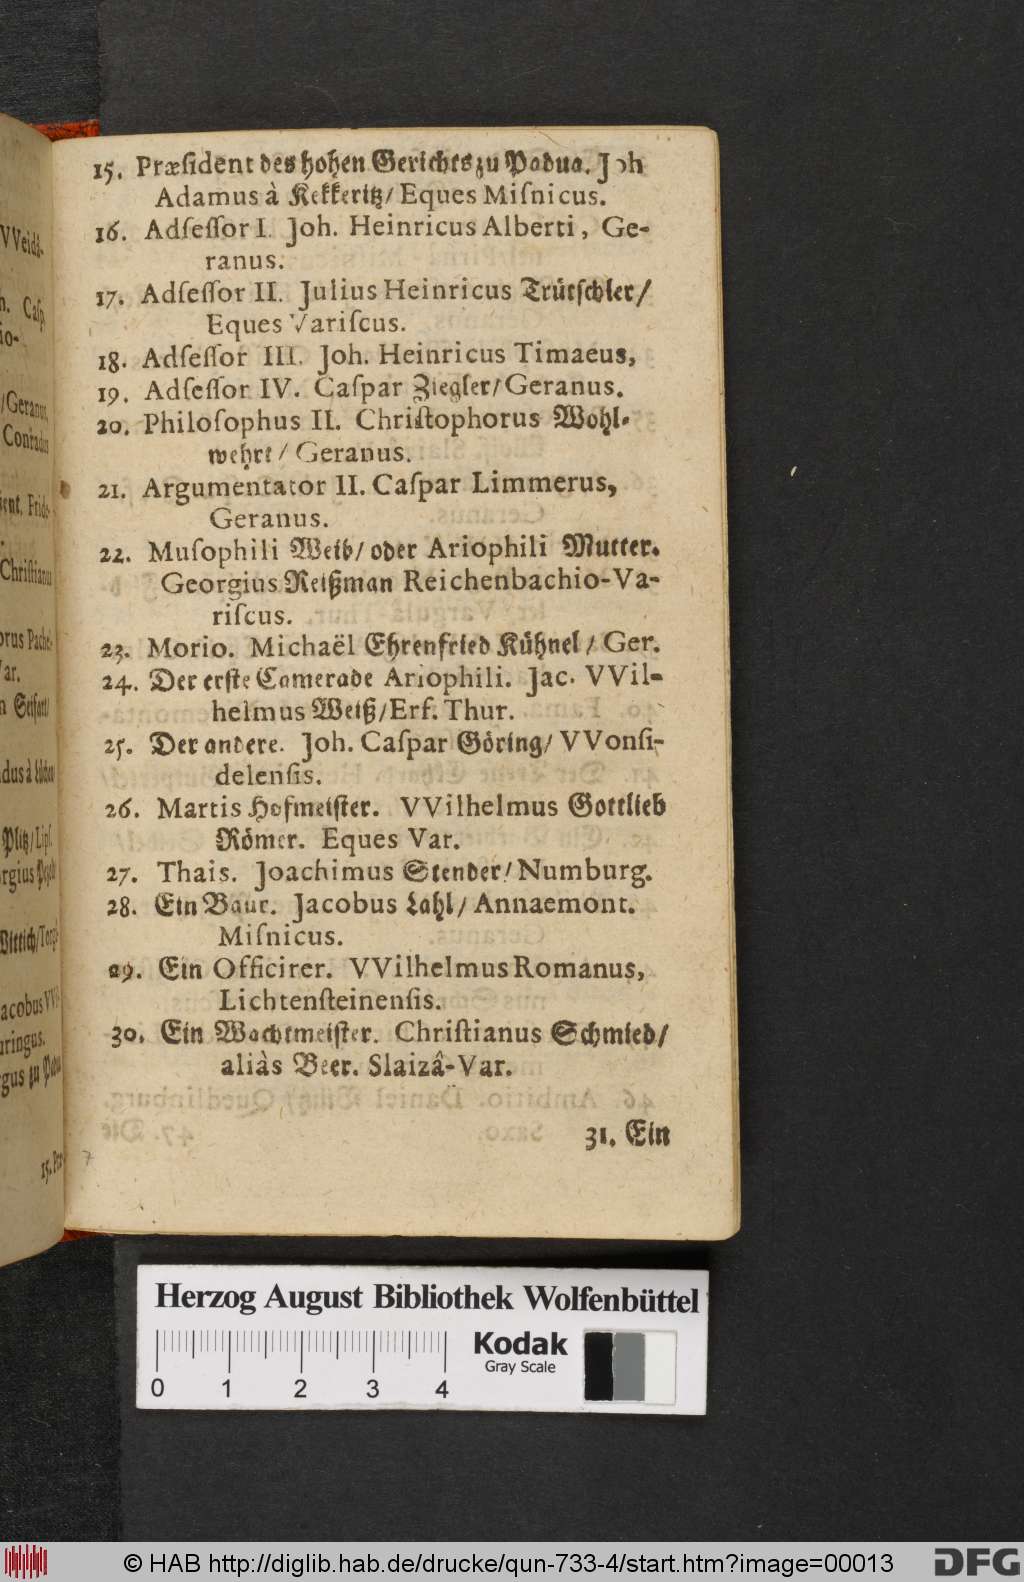 15. Præſident des hohen Gerichts zu Padua. Joh
Adamus à Kekkeritz/ Eques Miſnicus.
16. Adſeſſor I. Joh. Heinricus Alberti, Ge-
ranus.
17. Adſeſſor II. Julius Heinricus Trütſchler/
Eques Variſcus.
18. Adſeſſor III. Joh. Heinricus Timaeus,
19. Adſeſſor IV. Caſpar Ziegler/ Geranus.
20. Philoſophus II. Chriſtophorus Wohl-
wehrt/ Geranus.
21. Argumentator II. Caſpar Limmerus,
Geranus.
22. Muſophili Weib/ oder Ariophili Mutter.
Georgius Reißman Reichenbachio-Va-
riſcus.
23. Morio. Michaël Ehrenfried Kühnel/ Ger.
24. Der erſte Camerade Ariophili. Jac. VVil-
helmus Weiß/ Erf. Thur.
25. Der andere. Joh. Caſpar Göring/ VVonſi-
delenſis.
26. Martis Hofmeiſter. VVilhelmus Gottlieb
Römer. Eques Var.
27. Thais. Joachimus Stender/ Numburg.
28. Ein Baur. Jacobus Lahl/ Annaemont.
Miſnicus.
29. Ein Officirer. VVilhelmus Romanus,
Lichtenſteinenſis.
30. Ein Wachtmeiſter. Chriſtianus Schmied/
aliàs Beer. Slaizâ-Var.
31. Ein
7
VVeidâ-
Caſp.
/Geranus,
Conradus
Frid-
Chriſtianus
Pache-
Var.
Seifart/
Plitz/ Lipſ.
Wittich/
Jacobus VVi-
uringus.
zu Padua
15. Præ-
Herzog August Bibliothek Wolfenbüttel
Kodak
Gray Scale
0 1 2 3 4
© HAB http://diglib.hab.de/drucke/qun-733-4/start.htm?image=00013
DFG